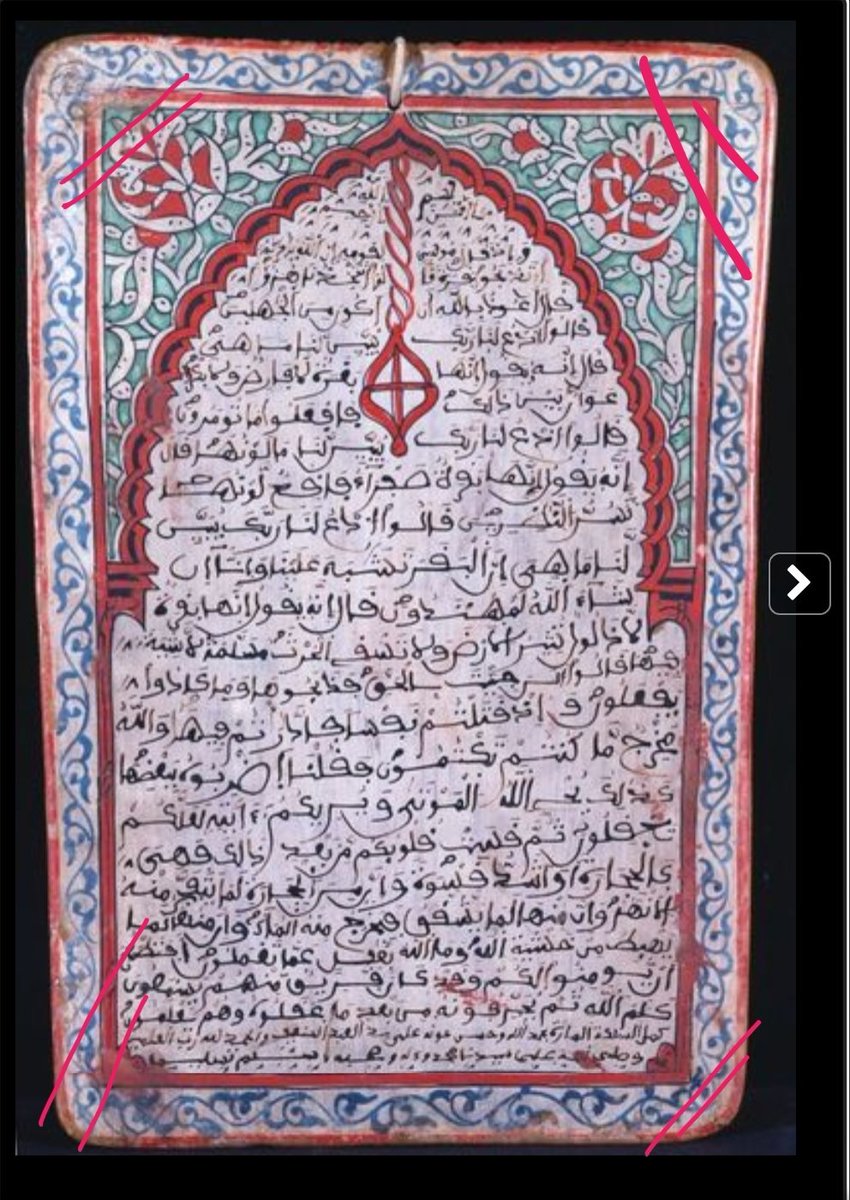 بسم الله
وإذ قال موسى لقومه إن الله
أن تذبحوا بقرة قالوا أتتخذنا هزؤا
قال أعوذ بالله أن أكون من الجهلين
قالوا ادع لنا ربك يبين لنا ما هي
قال إنه يقول إنها بقرة لا فارض ولا بكر
عوان بين ذلك فافعلوا ما تومرون
قالوا ادع لنا ربك يبين لنا ما لونها قال
إنه يقول إنها بقرة صفراء فاقع لونها
تسر النظرين قالوا ادع لنا ربك يبين
لنا ما هي إن البقر تشبه علينا وإنا إن
شاء الله لمهتدون قال إنه يقول إنها بقرة
لا ذلول تثير الارض ولا تسقي الحرث مسلمة لا شية
فيها قالوا الن جئت بالحق فذبحوها وما كادوا
يفعلون وإذ قتلتم نفسا فادارتم فيها والله
مخرج ما كنتم تكتمون فقلنا اضربوه ببعضها
كذلك يحي الله الموتى ويريكم ءايته لعلكم
تعقلون ثم قست قلوبكم من بعد ذلك فهي
كالحجارة أو أشد قسوة وإن من الحجارة لما يتفجر منه
الانهر وإن منها لما يشقق فيخرج منه الماء وإن منها لما
يهبط من خشية الله وما الله بغفل عما تعملون أفتطمعون
أن يومنوا لكم وقد كان فريق منهم يسمعون
كلم الله ثم يحرفونه من بعد ما عقلوه وهم يعلمون
كمل بحمد الله وحسن عونه على يد العبد والحمد لله رب العلمين
وصلى الله على سيدنا محمد وءاله وصحبه وسلم تسليما